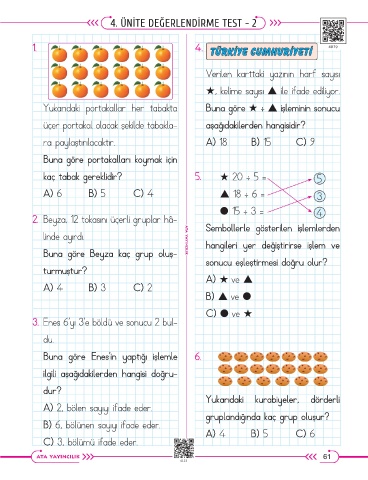 4. ÜNİTE DEĞERLENDİRME TEST - 2
1.
Yukarıdaki portakallar her tabakta
üçer portakal olacak şekilde tabakla-
ra paylaştırılacaktır.
Buna göre portakalları koymak için
kaç tabak gereklidir?
A) 6 B) 5 C) 4
2. Beyza, 12 tokasını üçerli gruplar hâ-
linde ayırdı.
Buna göre Beyza kaç grup oluş-
turmuştur?
A) 4 B) 3 C) 2
3. Enes 6'yı 3'e böldü ve sonucu 2 bul-
du.
Buna göre Enes'in yaptığı işlemle
ilgili aşağıdakilerden hangisi doğru-
dur?
A) 2, bölen sayıyı ifade eder.
B) 6, bölünen sayıyı ifade eder.
C) 3, bölümü ifade eder.
4. TÜRKİYE CUMHURİYETİ
Verilen karttaki yazının harf sayısı
★, kelime sayısı ▲ ile ifade ediliyor.
Buna göre ★ ÷ ▲ işleminin sonucu
aşağıdakilerden hangisidir?
A) 18 B) 15 C) 9
5. ★ 20 ÷ 5 = 5
▲ 18 ÷ 6 = 3
● 15 ÷ 3 = 4
Sembollerle gösterilen işlemlerden
hangileri yer değiştirirse işlem ve
sonucu eşleştirmesi doğru olur?
A) ★ ve ▲
B) ▲ ve ●
C) ● ve ★
6.
Yukarıdaki kurabiyeler, dörderli
gruplandığında kaç grup oluşur?
A) 4 B) 5 C) 6
ATA YAYINCILIK
61